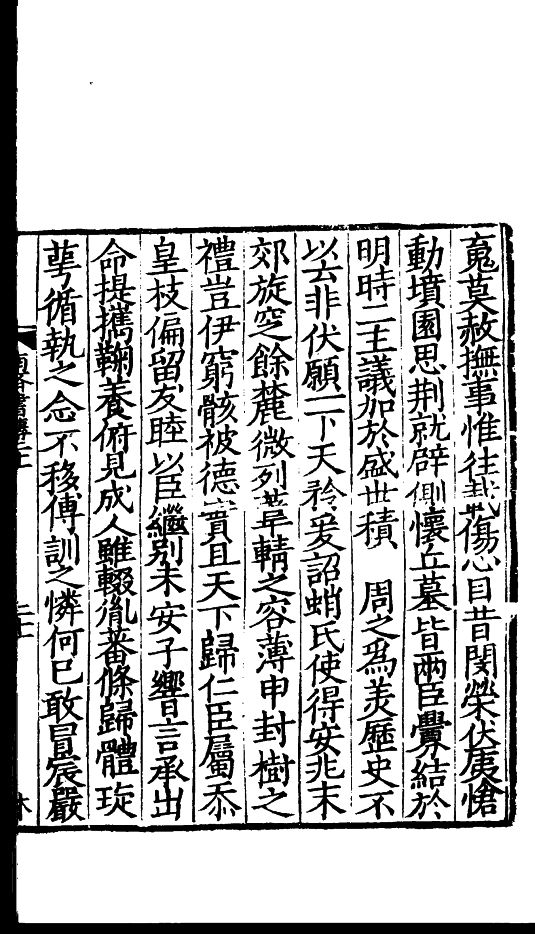 寃莫赦撫事惟往載傷心目昔閔榮伏庚愴
動墳園思荆就辟側懷丘墓皆兩臣釁結於
明時二主議加於盛世積　周之爲美歷史不
以云非伏願一下天矜爰詔蛸氏使得安兆末
郊旋窆餘麓微列葦輤之容薄申封樹之
禮豈伊窮骸被德實且天下歸仁臣屬忝
皇枝偏留友睦以臣繼别未安子響言承出
命提攜鞠養俯見成人雖輟胤蕃條歸體琁
蕚循執之念不移傅訓之憐何已敢冒宸嚴